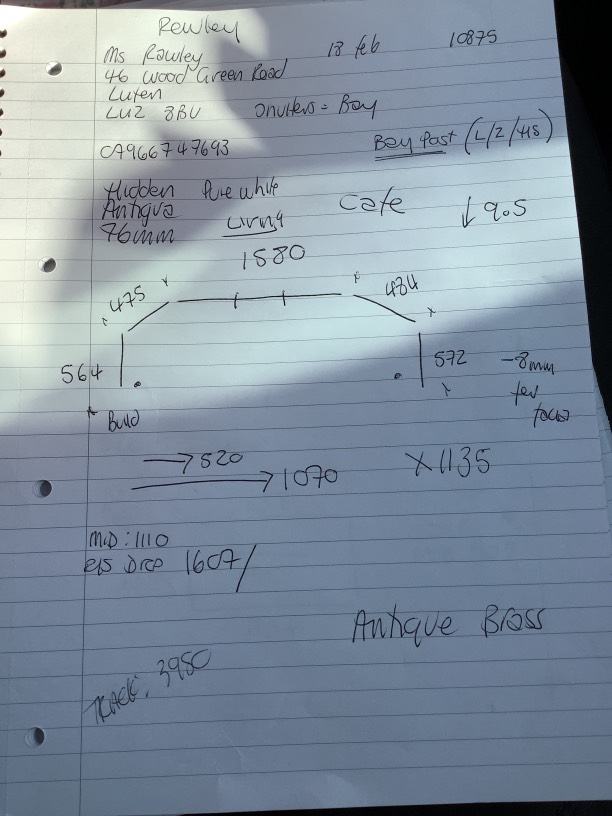 Rewley
Ms Rawley 18 feb 10875
46 Wood Green Road
Luten
LU2 8BU Shutters = Bay
CA966747693 Bay Post (L/Z/45)
Hidden Pure white
Antiqua Living Cafe ↓ 9.5
76mm
1580
475 484
564 572 -8mm
Build
→ 520 X 1135
→ 1070
MID: 1110
E15 Drop 1607/
Antique Brass
TRACK: 3950